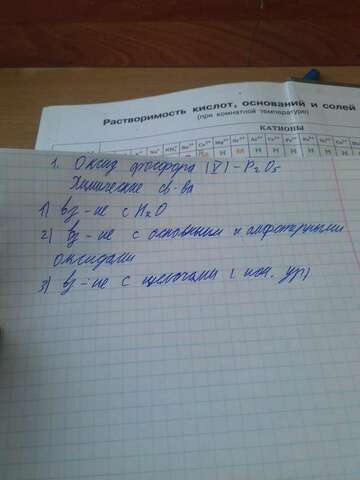 Растворимость кислот, оснований и солей
(при комнатной температуре)
КАТИОНЫ
1. Оксид фосфора (V) – P₂O₅
Химические св-ва
1) вз-ие с H₂O
2) вз-ие с основными и амфотерными
оксидами
3) вз-ие с щелочами ( ион. ур)